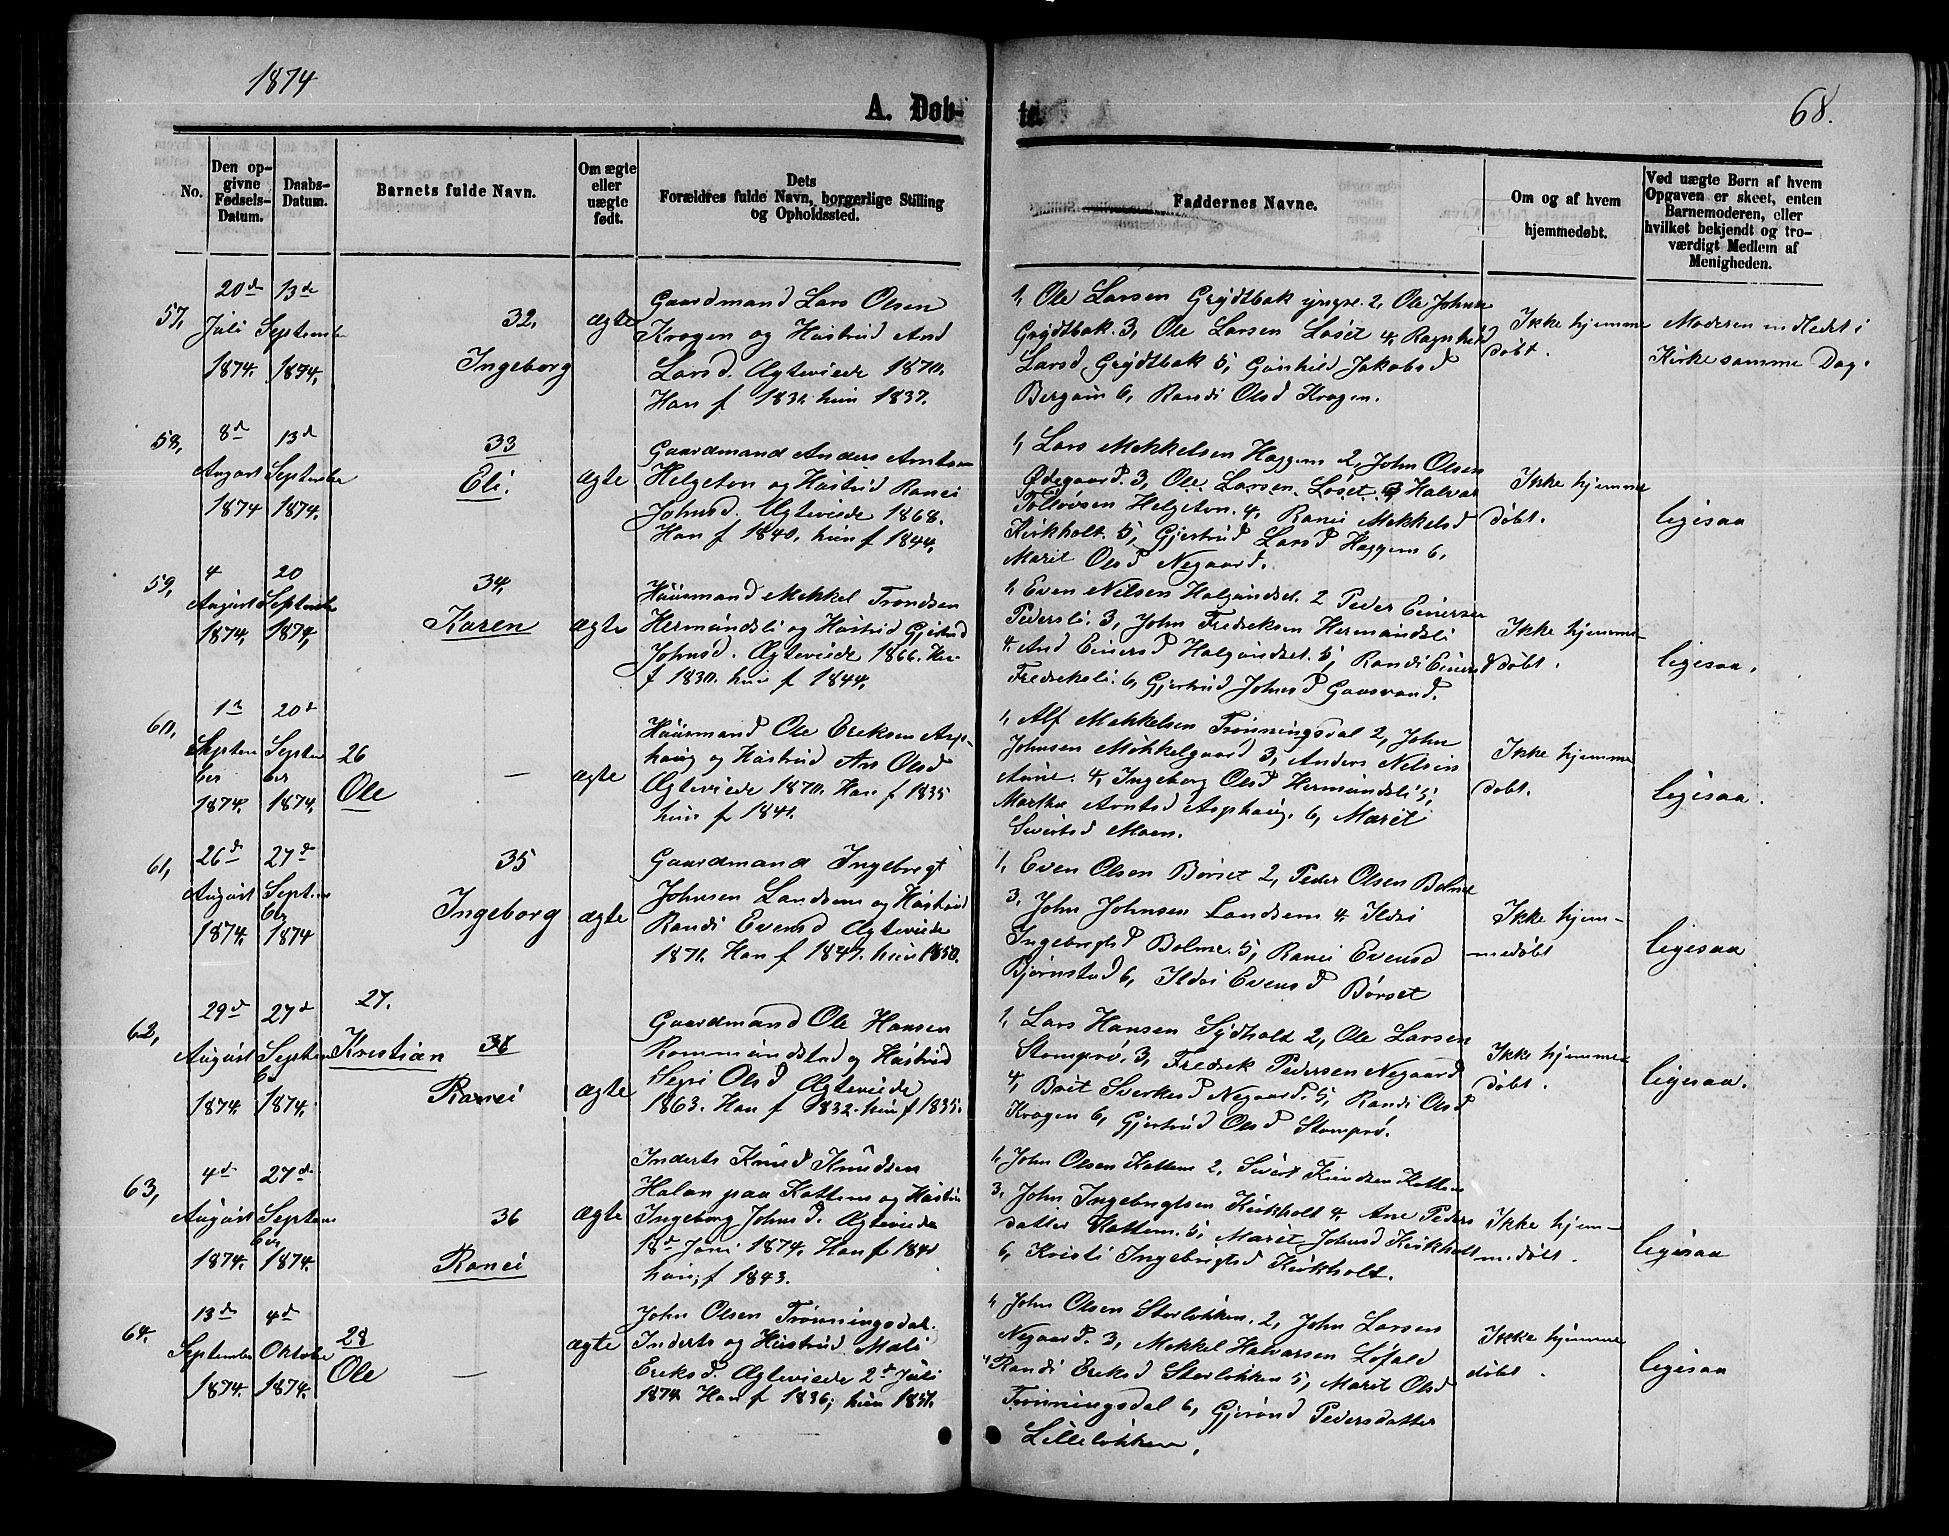 1874
A. Døb-
te.
68.
No.
Den op-
givne
Fødsels-
Datum.
Daabs-
Datum.
Barnets fulde Navn.
Om ægte
eller
uægte
født.
Dets
Forældres fulde Navn, borgerlige Stilling
og Opholdssted.
Faddernes Navne.
Om og af hvem
hjemmedøbt.
Ved uægte Børn af hvem
Opgaven er skeet, enten
Barnemoderen, eller
hvilket bekjendt og tro-
værdigt Medlem af
Menigheden.
57,
20de
Juli
1874.
13de
September
1874,
32.
Ingeborg
ægte
Gaardmand Lars Olsen
Krogen og Hustrud And
Larsd. Ægteviede 1870.
Han f 1832 hun 1837.
1, Ole Larsen Grydtbak yngre. 2, Ole Johns
Grydtbak. 3, Ole Larsen Løset 4, Ragnhild
Larsd Grydtbak 5, Gunhild Jakobsd
Bergum 6, Randi Olsd Krogen.
Ikke hjemme
døbt.
Moderen indledet i
Kirke samme Dag.
58,
8de
August
1874
13de
September
1874.
33
Eli.
ægte
Gaardmand Anders Arntsen
Helgeton og Hustrud Ranei
Johnsd. Ægteviede 1868.
Han f 1840, hun f 1844,
1, Lars Mekkelsen Haggem 2, John Olsen
Ødegaard. 3, Ole Larsen Løset Halvar
Helgeton. 4, Ranei Mekkelsd
Kirkholt. 5, Gjertrud Larsd Haggem 6,
Marit Olsd Negaard.
Ikke hjemme
døbt.
ligesaa
59,
4
August
1874.
20
September
1874,
34,
Karen
ægte
Huusmand Mekkel Trondsen
Hermundsli og Hustrud Gjertrud
Johnsd. Ægteviede 1866. Han
f 1830. hun f 1844.
1, Even Nilsen Halgundset. 2 Peder Einersen
Pedersli. 3, John Fredreksen Hermundsli
4, And Einersd Halgundset. 5, Randi Einersd
Fredreksli. 6, Gjertrud Johnsd Gaasvand.
Ikke hjemme-
døbt.
ligesaa.
60,
1ste
Septem
ber
1874.
20de
Septem
ber
1874.
26
Ole
—
ægte
Huusmand Ole Ereksen Asp-
haug og Hustrud Ane Olsd
Ægteviede 1870. Han f 1835
hun f 1841.
1, Alf Mekkelsen Trønningsdal 2, John
Johnsen Mekkelgaard 3, Anders Nelsen
Aune. 4, Ingeborg Olsd Hermundsli 5,
Martha Arntsd Asphaug. 6, Marit
Sivertsd Moen.
Ikke hjemme
døbt.
ligesaa.
61,
26de
August
1874.
27de
Septem
ber
1874
35
Ingeborg
ægte
Gaardmand Ingebrigt
Johnsen Landsem og Hustrud
Randi Evensd Ægteviede
1871. Han f 1847. hun 1850.
1, Even Olsen Børset 2, Peder Olsen Bolme
3, John Johnsen Landsem 4, Ildri
Ingebrigtsd Bolme. 5, Ranei Evensd
Bjørnstad 6, Ildri Evensd Børset
Ikke hjem-
medøbt
ligesaa
62,
29de
August
1874.
27de
Septem
ber
1874.
27.
Kristian
Ranei
ægte
Gaardmand Ole Hansen
Rommundstad og Hustrud
Segri Olsd Ægteviede
1863. Han f 1832. hun f 1835.
1, Lars Hansen Sydholt 2, Ole Larsen
Stomprø. 3, Fredrek Pedersen Negaard
4, Brit Sverkesd Negaard. 5, Randi Olsd
Krogen 6, Gjertrud Olsd Stomprø.
Ikke hjemme
døbt.
ligesaa.
63,
4de
August
1874.
27de
Septem
ber
1874.
36
Ranei
ægte
Inderts Knud Knudsen
Halan paa Kattem og Hustru
Ingeborg Johnsd. Ægteviede
18de Juni 1874. Han f 1841
hun f 1843.
1, John Olsen Kattem 2, Sivert Knudsen Kattem
3, John Ingebrigtsen Kirkholt 4, Ane Peders
datter Kattem. 5, Marit Johnsd Kirkholt
6, Kristi Ingebrigtsd Kirkholt.
Ikke hjem-
medøbt.
ligesaa
64.
13de
September
1874.
4de
Oktober
1874.
28
Ole
—
ægte
John Olsen Trønningsdal.
Inderts og Hustrud Mali
Ereksd. Ægteviede 2de Juli
1874. Han f 1836; hun 1851.
1, John Olsen Storløkken. 2, John Larsen
Negaard. 3, Mekkel Halvarsen Løfald
4, Randi Ereksd Storløkken 5, Marit Olsd
Trønningsdal 6, Gjørond Pedersdatter
Lilleløkken,
Ikke hjemme
døbt.
ligesaa